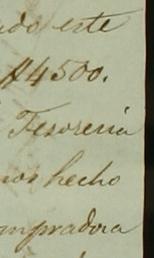 ado este
$4500.
Tesoreria
nos hecho
mpradora